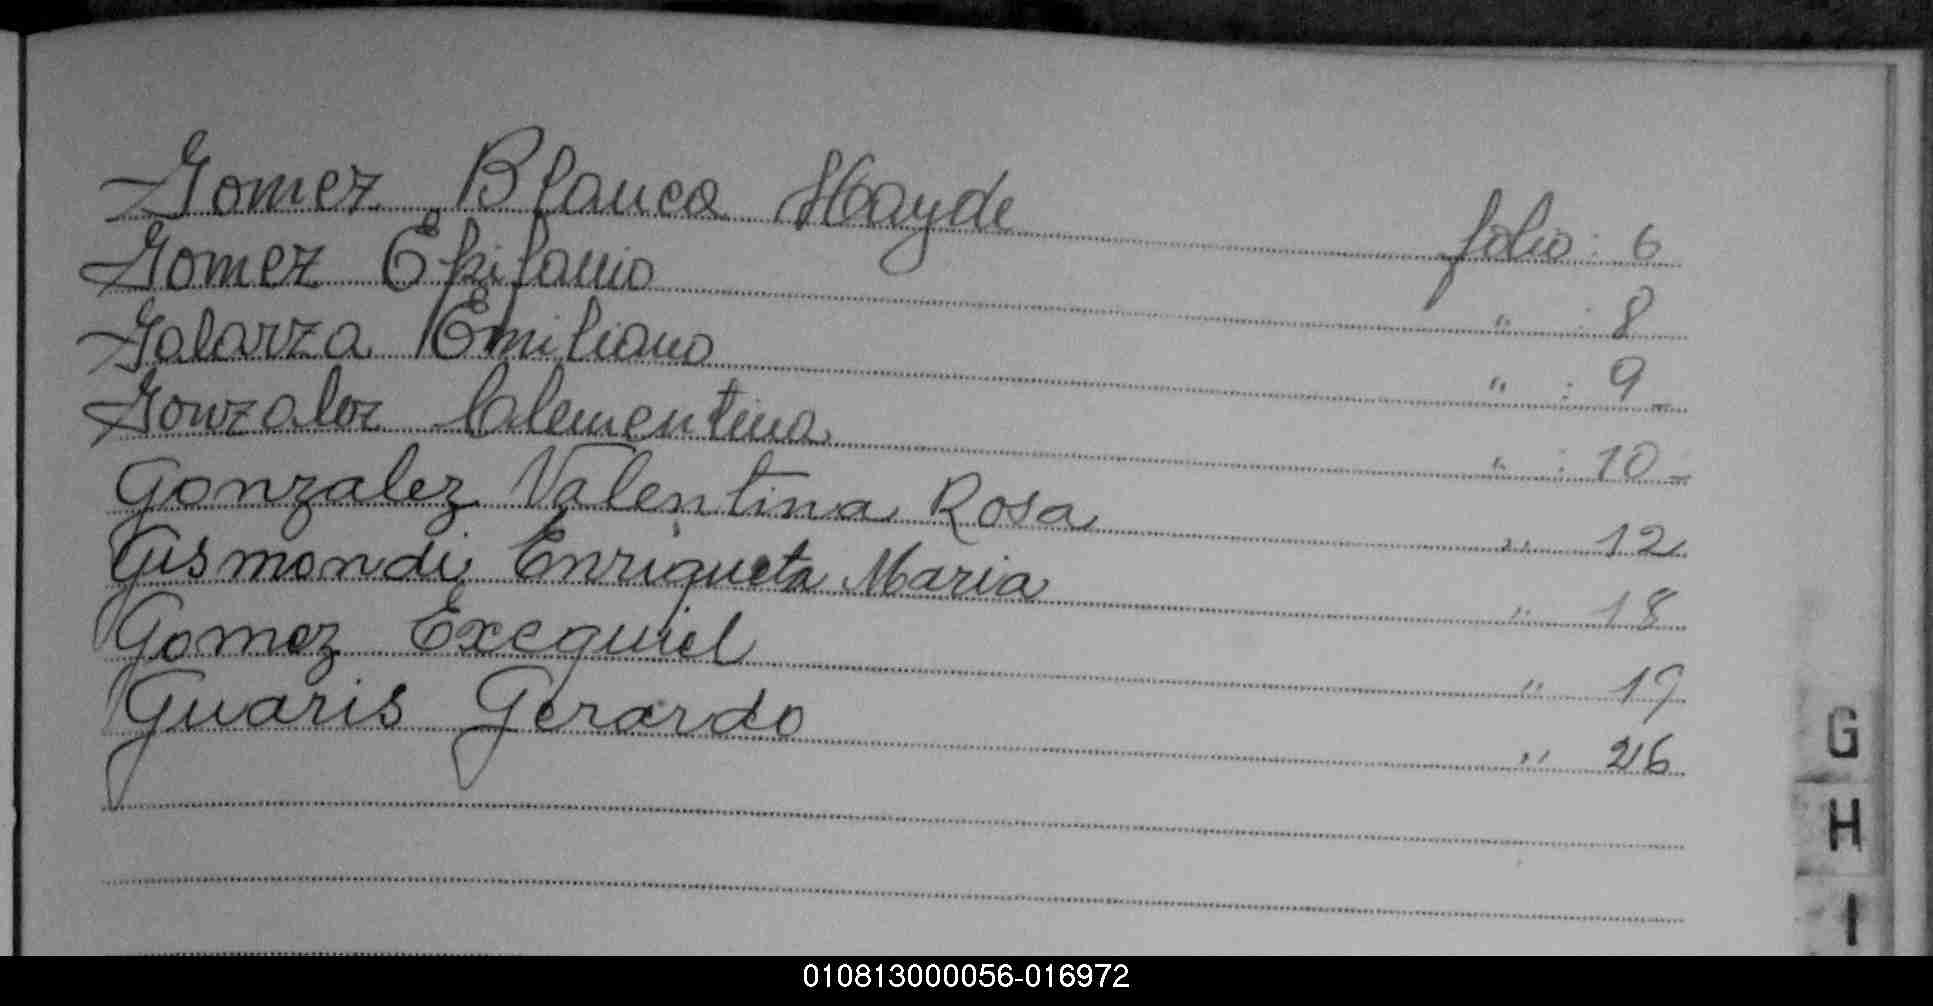 Gomez Blanca Hayde folio : 6
Gomez Epifanio " : 8
Galarza Emiliano " : 9_
Gonzalez Clementina " : 10_
Gonzalez Valentina Rosa " 12
Gismondi Enriqueta Maria " 18
Gomez Exequiel " 19
Guaris Gerardo " 26
G
H
I
010813000056-016972